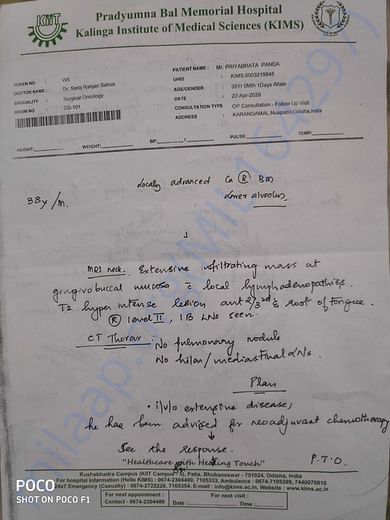 Pradyumna Bal Memorial Hospital
Kalinga Institute of Medical Sciences (KIMS)
KIIT
PATIENT NAME : Mr. PRIYABRATA PANDA
TOKEN NO : WS
UHID : KIMS.0003219845
DOCTOR NAME : Dr. Saroj Ranjan Sahoo
AGE/GENDER : 38Yr 0Mth 1Days /Male
SPECIALITY : Surgical Oncology
DATE : 22-Apr-2020
ROOM NO : OS-101
CONSULTATION TYPE : OP Consultation - Follow Up Visit
ADDRESS : KARANGAMAL,Nuapada,Odisha,India
HEIGHT: WEIGHT: BP: / PULSE: TEMP:
Locally advanced Ca (R) BM
38y/m. Lower alveolus
MRI neck. Extensive infiltrating mass at
gingivobuccal mucosa c local lymphadenopathies.
T2 hyper intense lesion ant 2/3rd & root of tongue.
(R) level II, IB LNs seen.
CT Thorax : No pulmonary nodule
No hilar/mediastinal LN/s.
Plan
i/v/o extensive disease;
he has been advised for neoadjuvant chemotherapy
↓
See the response.
P.T.O.
"Healthcare with Healing Touch"
Kushabhadra Campus (KIIT Campus-5), Patia, Bhubaneswar - 751024, Odisha, India
For hospital information (Hello KIMS) : 0674-2304400, 7105555, Fax : 0674-7105399, 7440070010
24x7 Emergency (Casualty) : 0674-2725228, 7105354, E-mail : info@kims.ac.in, Website : www.kims.ac.in
For next appointment : For next visit :
Contact - 0674-2304400 Date : Time :
POCO
SHOT ON POCO F1